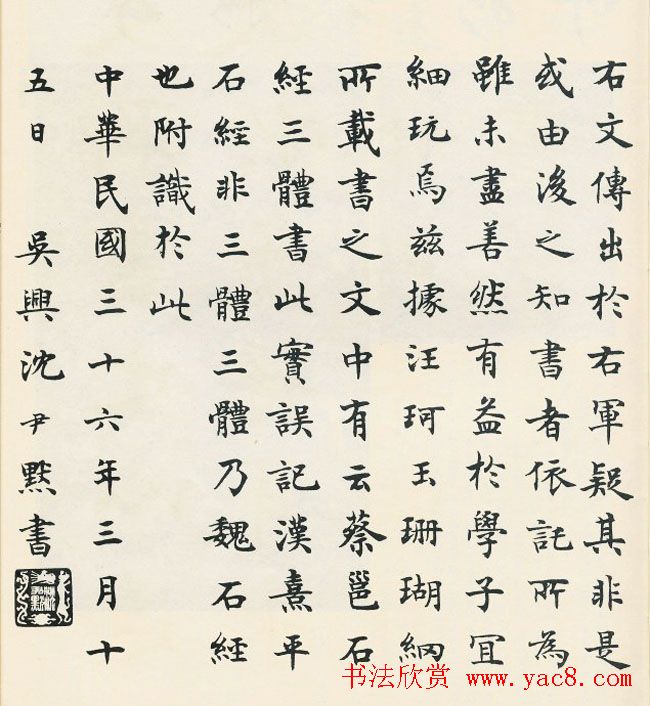 右文傳出於右軍疑其非是
或由後之知書者依託所為
雖未盡善然有益於學子宜
細玩焉兹據汪珂玉珊瑚網
所載書之文中有云蔡邕石
經三體書此實誤記漢熹平
石經非三體三體乃魏石經
也附識於此
中華民國三十六年三月十
五日 吳興沈尹默書
书法欣赏 www.yac8.com